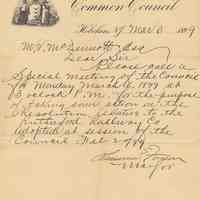 Common Council
Hoboken N.J. Mar 3 1899
M.V. McDermott Esq
Dear Sir
Please call a
Special meeting of the Council
for Monday March 6, 1899 at
8 oclock P.M. for the purpose
of taking some action on the
Resolution relative to the
Rutherford Railway Co
adopted at session of the
Council Feb 2
Mayor